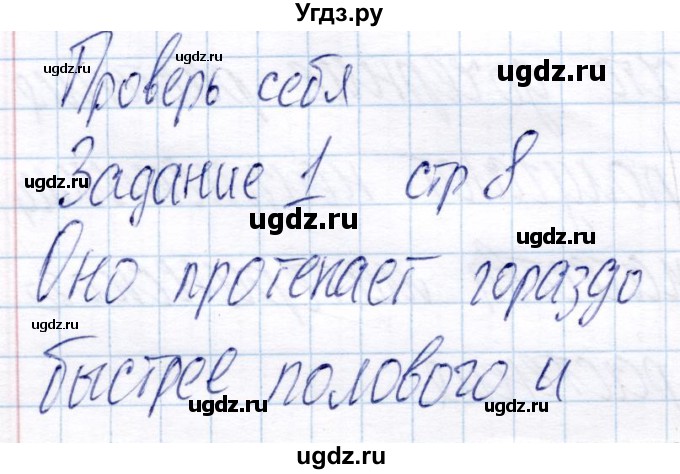 Угдз.ру
Проверь себя
Задание 1 стр 8
Оно протекает гораздо
быстрее полового и
ugdz.ru
ugdz.ru
ugdz.ru
ugdz.ru
ugdz.ru
ugdz.ru
ugdz.ru
ugdz.ru
ugdz.ru
ugdz.ru
ugdz.ru